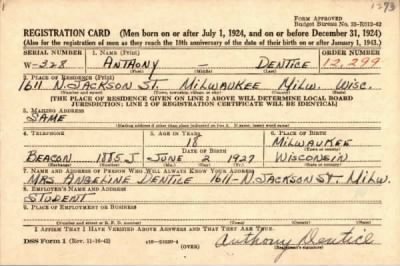 1293
FORM APPROVED
Budget Bureau No. 33-R012-42
REGISTRATION CARD (Men born on or after July 1, 1924, and on or before December 31, 1924)
(Also for the registration of men as they reach the 18th anniversary of the date of their birth on or after January 1, 1943.)
SERIAL NUMBER 1. NAME (Print) ORDER NUMBER
W-328 ANTHONY - DENTICE 12,299
(First) (Middle) (Last)
2. PLACE OF RESIDENCE (Print)
1611 N. JACKSON ST. MILWAUKEE MILW. WISC.
(Number and street) (Town, township, village, or city) (County) (State)
[THE PLACE OF RESIDENCE GIVEN ON LINE 2 ABOVE WILL DETERMINE LOCAL BOARD
JURISDICTION; LINE 2 OF REGISTRATION CERTIFICATE WILL BE IDENTICAL]
3. MAILING ADDRESS
SAME
[Mailing address if other than place indicated on line 2. If same, insert word same]
4. TELEPHONE 5. AGE IN YEARS 6. PLACE OF BIRTH
18 MILWAUKEE
DATE OF BIRTH (Town or county)
BEACON 1885J JUNE 2 1927 WISCONSIN
(Exchange) (Number) (Mo.) (Day) (Yr.) (State or country)
7. NAME AND ADDRESS OF PERSON WHO WILL ALWAYS KNOW YOUR ADDRESS
MRS ANGELINE DENTICE 1611-N. JACKSON ST. MILW.
8. EMPLOYER'S NAME AND ADDRESS
STUDENT
9. PLACE OF EMPLOYMENT OR BUSINESS
(Number and street or R. F. D. number) (Town) (County) (State)
I AFFIRM THAT I HAVE VERIFIED ABOVE ANSWERS AND THAT THEY ARE TRUE.
DSS Form 1 (Rev. 11-16-42) (OVER) Anthony Dentice